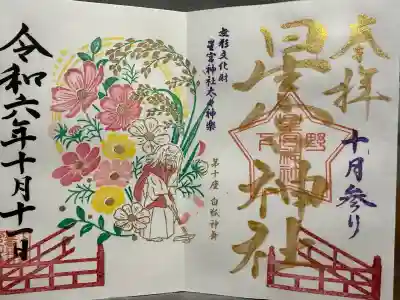 奉拝
十月参り
星宮神社
下野
星宮神社
無形文化財
星宮神社太々神楽
第十座
令和六年十月十一日